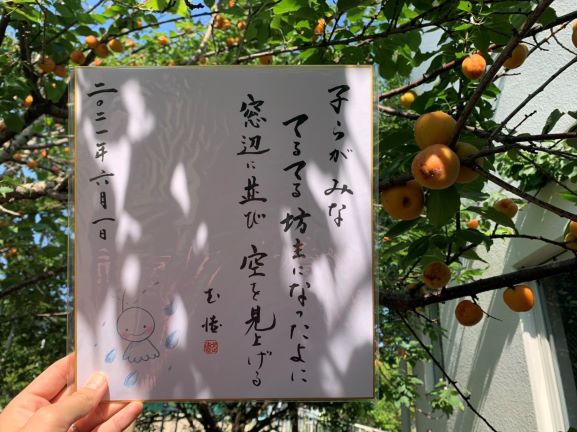 子らがみな
てるてる坊主になったよに
窓辺に並び 空を見上げる
二〇二一年 六月一日